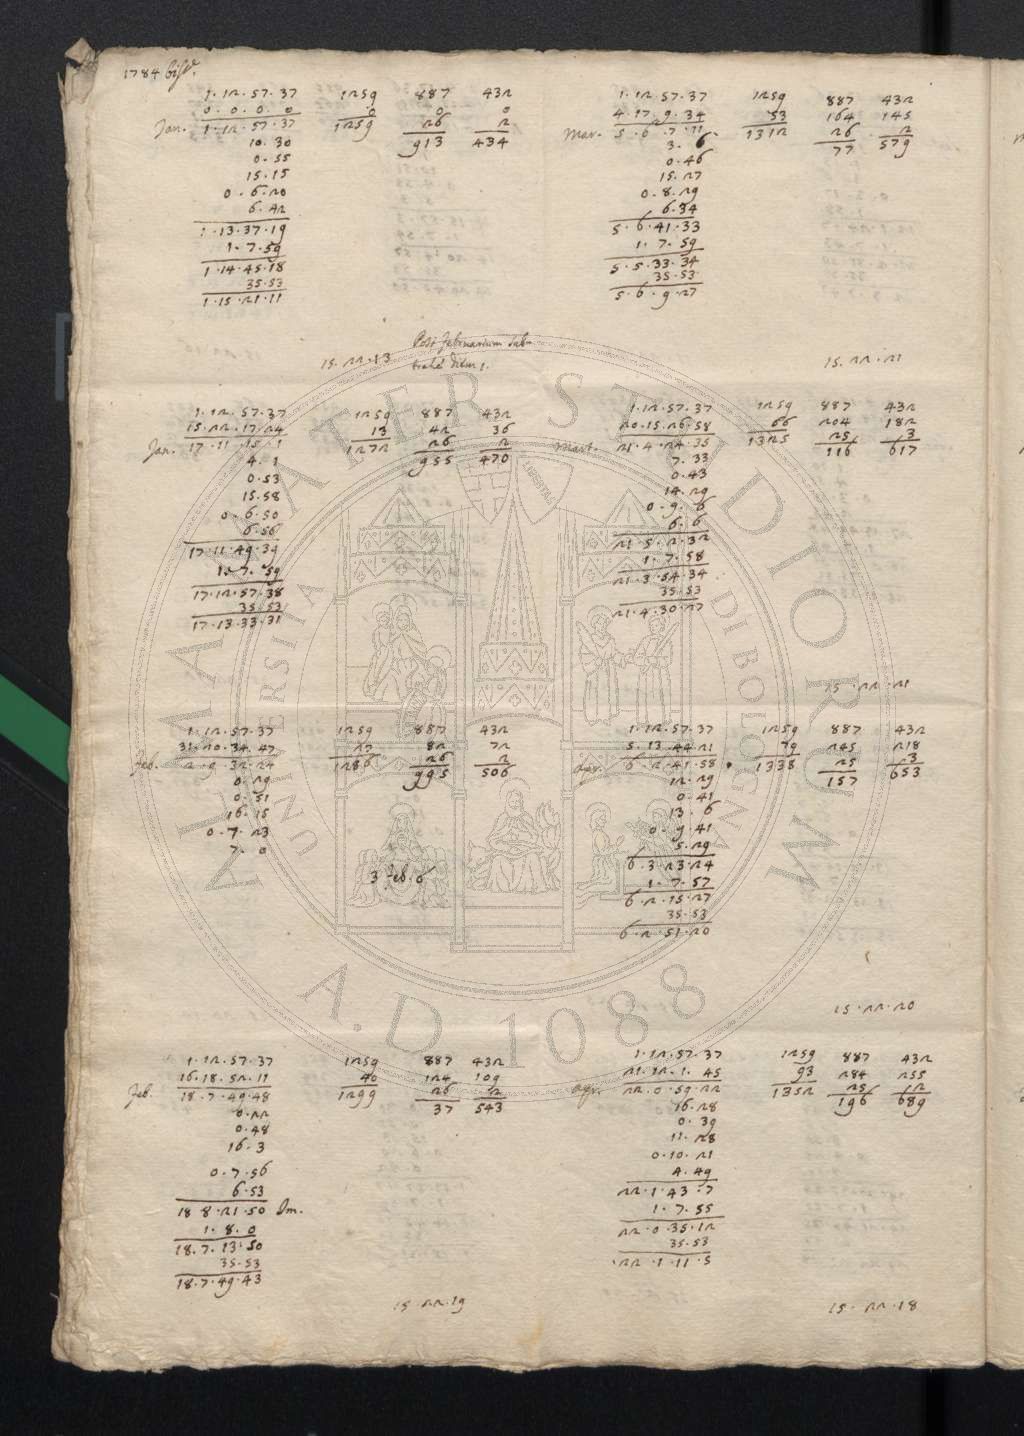 1784 biss.
1. 12. 57. 37 1259 887 432
0. 0. 0. 0 0 0 0
Jan. 1. 12. 57. 37 1259 26 2
10. 30 913 434
0. 55
15. 15
0. 6. 20
6. 42
1. 13. 37. 19
1. 7. 59
1. 14. 45. 18
35. 53
1. 15. 21. 11
15. 22. 13
Post februarium sub-
trahe diem 1.
Jan. 1. 12. 57. 37 1259 887 432
15. 22. 17. 24 13 42 36
17. 11. 15. 1 1272 26 2
4. 1 955 470
0. 53
15. 58
0. 6. 50
6. 56
17. 11. 49. 39
1. 7. 59
17. 12. 57. 38
35. 53
17. 13. 33. 31
1. 12. 57. 37 1259 887 432
31. 20. 34. 47 27 82 72
Feb. 2. 9. 32. 24 1286 26 2
0. 29 995 506
0. 51
16. 15
0. 7. 23
7. 0
3 Feb. 6
1. 12. 57. 37 1259 887 432
16. 18. 52. 11 40 124 109
Feb. 18. 7. 49. 48 1299 26 2
0. 22 37 543
0. 48
16. 3
0. 7. 56
6. 53
18. 8. 21. 50 Im.
1. 8. 0
18. 7. 13. 50
35. 53
18. 7. 49. 43
15. 22. 19
1. 12. 57. 37 1259 887 432
4. 17. 9. 34 53 164 145
Mar. 5. 6. 7. 11 1312 26 2
3. 6 77 579
0. 46
15. 27
0. 8. 29
6. 34
5. 6. 41. 33
1. 7. 59
5. 5. 33. 34
35. 53
5. 6. 9. 27
15. 22. 21
1. 12. 57. 37 1259 887 432
20. 15. 26. 58 66 204 182
Mart. 21. 4. 24. 35 1325 25 3
7. 33 116 617
0. 43
14. 29
0. 9. 6
6. 6
21. 5. 2. 32
1. 7. 58
21. 3. 54. 34
35. 53
21. 4. 30. 27
15. 22. 21
1. 12. 57. 37 1259 887 432
5. 13. 44. 21 79 245 218
Apr. 6. 2. 41. 58 1338 25 3
12. 29 157 653
0. 41
13. 6
0. 9. 41
5. 29
6. 3. 23. 24
1. 7. 57
6. 2. 15. 27
35. 53
6. 2. 51. 20
15. 22. 20
1. 12. 57. 37 1259 887 432
21. 12. 1. 45 93 284 255
Apr. 22. 0. 59. 22 1352 25 2
16. 28 196 689
0. 39
11. 28
0. 10. 21
4. 49
22. 1. 43. 7
1. 7. 55
22. 0. 35. 12
35. 53
22. 1. 11. 5
15. 22. 18
ALMA MATER STUDIORUM
UNIVERSITÀ DI BOLOGNA
A.D. 1088